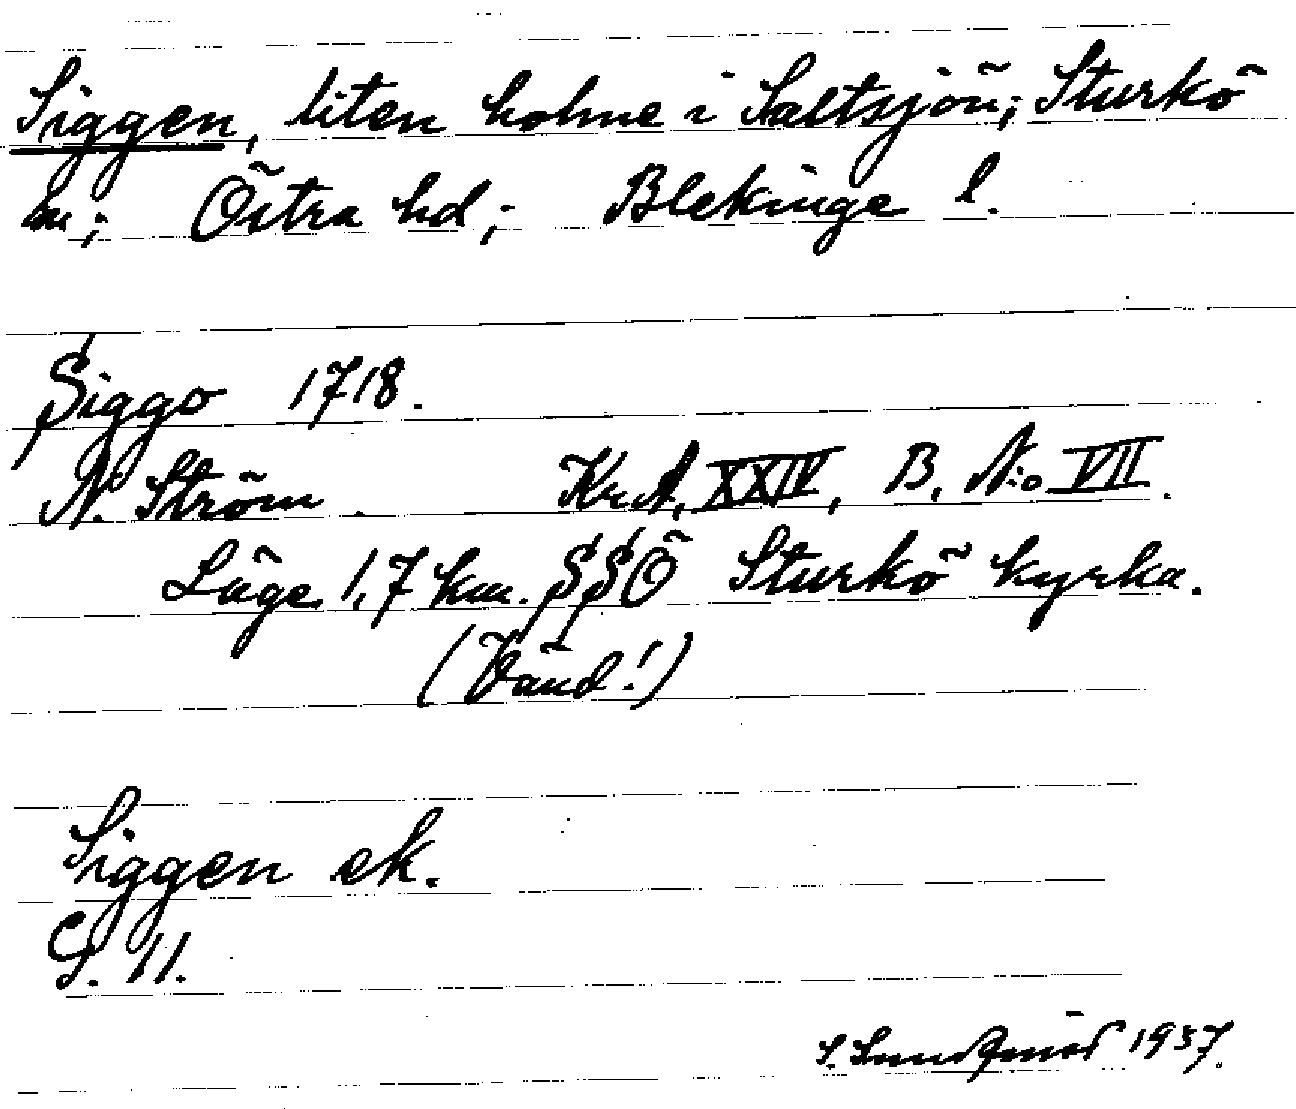 Siggen, liten holme i Saltsjön; Sturkö
sn; Östra hd; Blekinge l.
Siggo 1718.
N. Ström. KrA, XXIV, B, N:o VII.
Läge 1,7 km. SSÖ Sturkö kyrka.
(Vänd!)
Siggen ek.
S. 11.
1937.